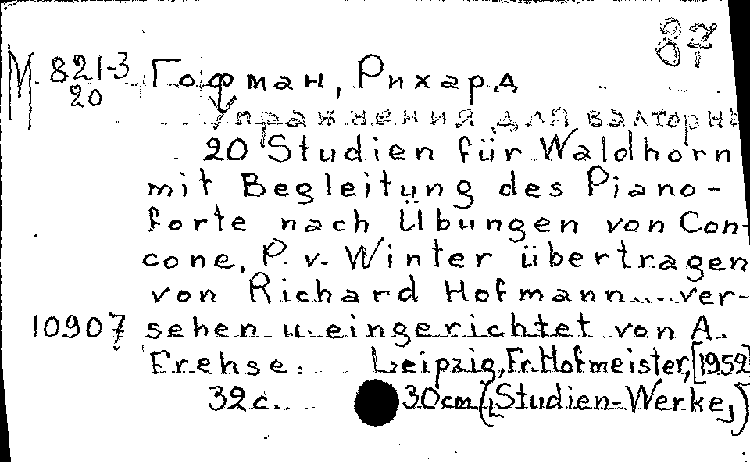 87
М 821-3 Гофман, Рихард
20
Упражнения для валторны
20 Studien für Waldhorn
mit Begleitüng des Piano-
forte nach Übungen von Con-
cone, P. v. Winter übertragen
von Richard Hofmann... ver-
10907 sehen u. eingerichtet von A.
Frehse. Leipzig, Fr. Hofmeister, [1952]
32 с. 30 cm (Studien-Werke)